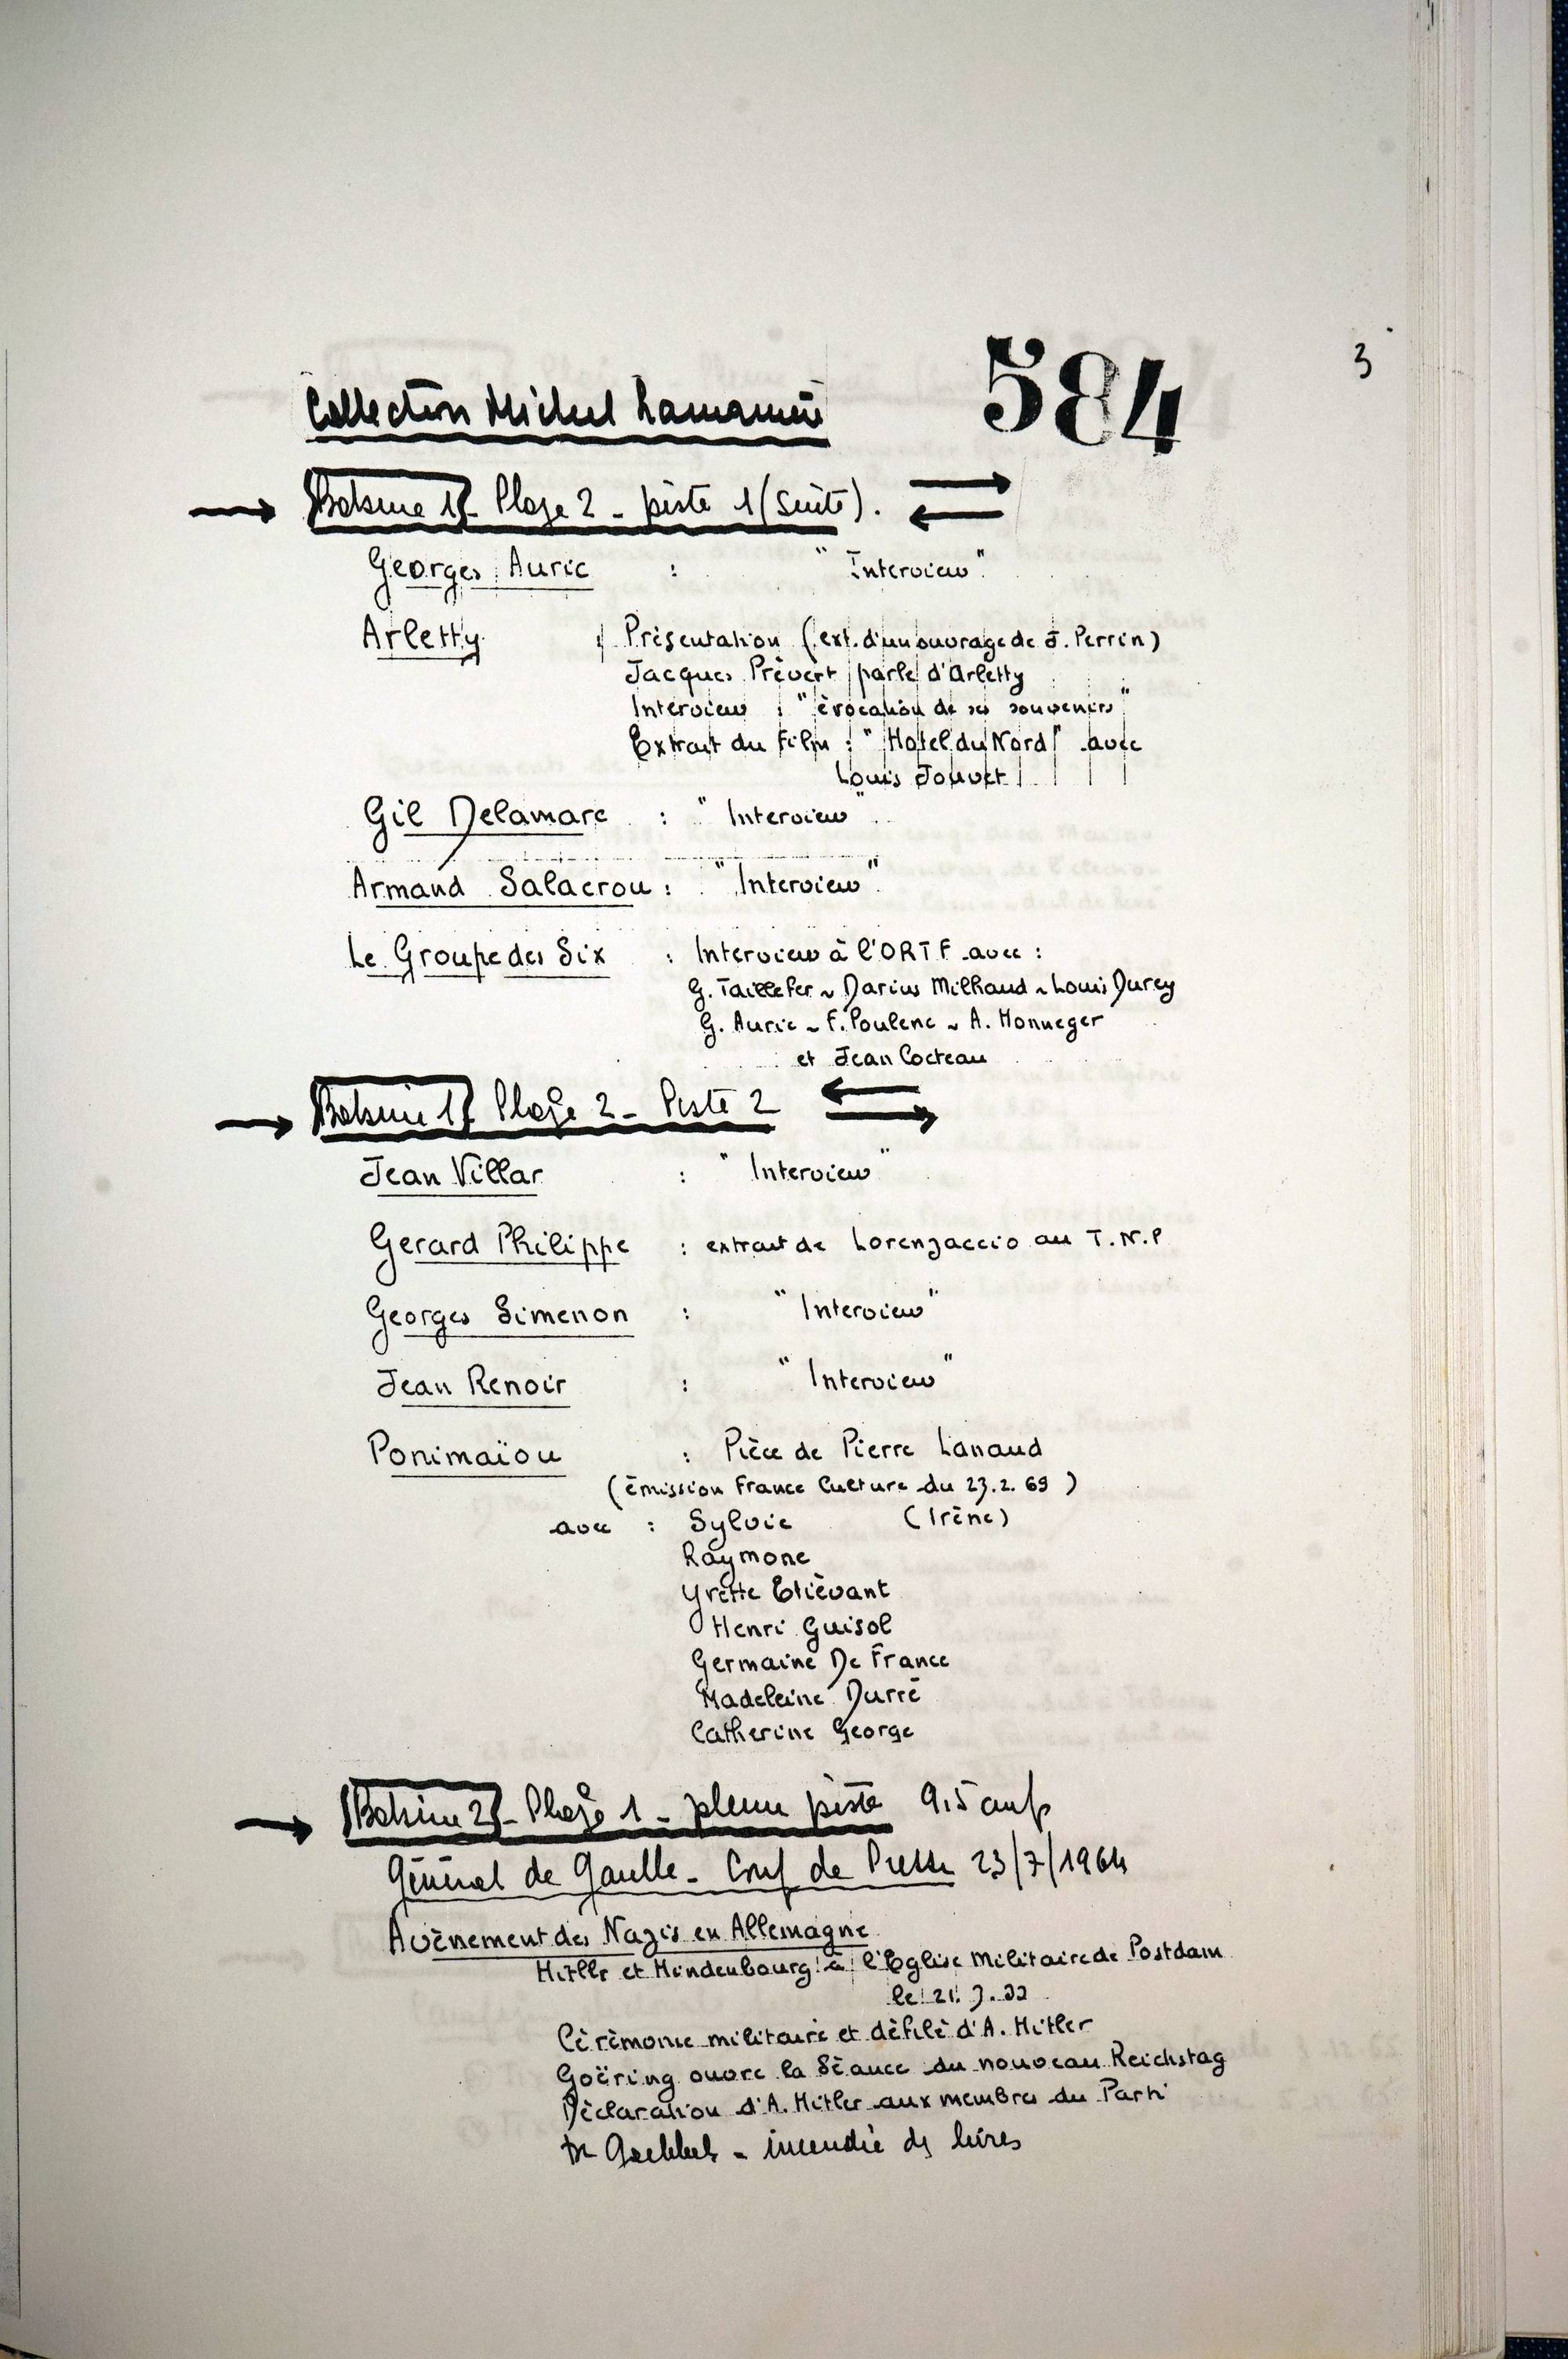 584
3
Collection Michel
Bobine 1 - Plage 2 - piste 1 (suite).
Georges Auric : "Interview"
Arletty : Présentation (ext. d'un ouvrage de J. Perrin)
Jacques Prévert parle d'Arletty
Interview : "évocation de ses souvenirs"
Extrait du Film : "Hotel du Nord" avec
Louis Jouvet
Gil Delamare : "Interview"
Armand Salacrou : "Interview"
Le Groupe des Six : Interview à l'ORTF avec :
G. Taillefer ~ Darius Milhaud ~ Louis Durey
G. Auric ~ F. Poulenc ~ A. Honneger
et Jean Cocteau
Bobine 1 - Plage 2 - Piste 2
Jean Villar : "Interview"
Gerard Philippe : extrait de Lorenzaccio au T.N.P
Georges Simenon : "Interview"
Jean Renoir : "Interview"
Ponimaïou : Pièce de Pierre Lanaud
(émission France Culture du 23.2.69)
avec : Sylvie (Irène)
Raymone
Yvette Etiévant
Henri Guisol
Germaine De France
Madeleine Durré
Catherine George
Bobine 2 - Plage 1 - pleine piste 9,5 cm/s
Général de Gaulle - Conf de Presse 23/7/1964
Avènement des Nazis en Allemagne
Hitler et Hindenbourg à l'Eglise Militaire de Postdam
le 21.3.33
Cérémonie militaire et défilé d'A. Hitler
Goëring ouvre la Séance du nouveau Reichstag
Déclaration d'A. Hitler aux membres du Parti
Dr Goebbels - incendie des livres